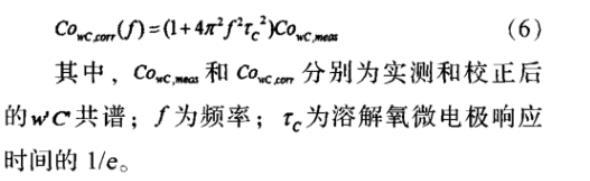 Co_{wC,corr}(f)=(1+4π²f²τ_C²)Co_{wC,meas} (6)
其中，Co_{wC,meas} 和 Co_{wC,corr} 分别为实测和校正后
的w'C'共谱；f 为频率；τ_C为溶解氧微电极响应
时间的 1/e。